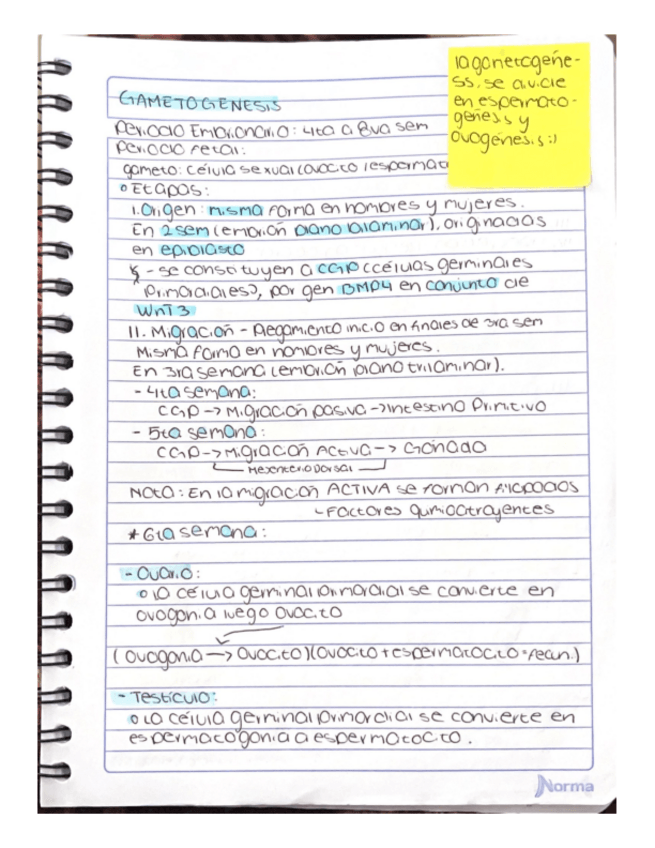 la gametogéne-
sis, se divide
en espermato-
génesis y
ovogénesis :)
GAMETOGENESIS
Periodo Embrionario: 4ta a 8va sem
Periodo fetal:
gameto: Célula sexual (ovocito / espermat
Etapas:
I. Origen: misma forma en hombres y mujeres.
En 2 sem (embrión plano bilaminar), originados
en epiblasto
- se constituyen a CGP (células germinales
primordiales), por gen BMP4 en conjunto de
WnT3
II. Migración - Plegamiento inicio en finales de 3ra sem
Misma forma en hombres y mujeres.
En 3ra semana (embrión plano trilaminar).
- 4ta semana:
CGP -> Migración pasiva -> Intestino Primitivo
- 5ta semana:
CGP -> Migración Activa -> Gónada
Mesenterio Dorsal
Nota: En la migración ACTIVA se forman filopodios
Factores quimioatrayentes
* 6ta semana:
- Ovario:
la célula germinal primordial se convierte en
ovogonia luego Ovocito
(Ovogonia -> Ovocito)(Ovocito + espermatocito = fecun.)
- Testículo:
La célula germinal primordial se convierte en
espermatogonia a espermatocito.
Norma